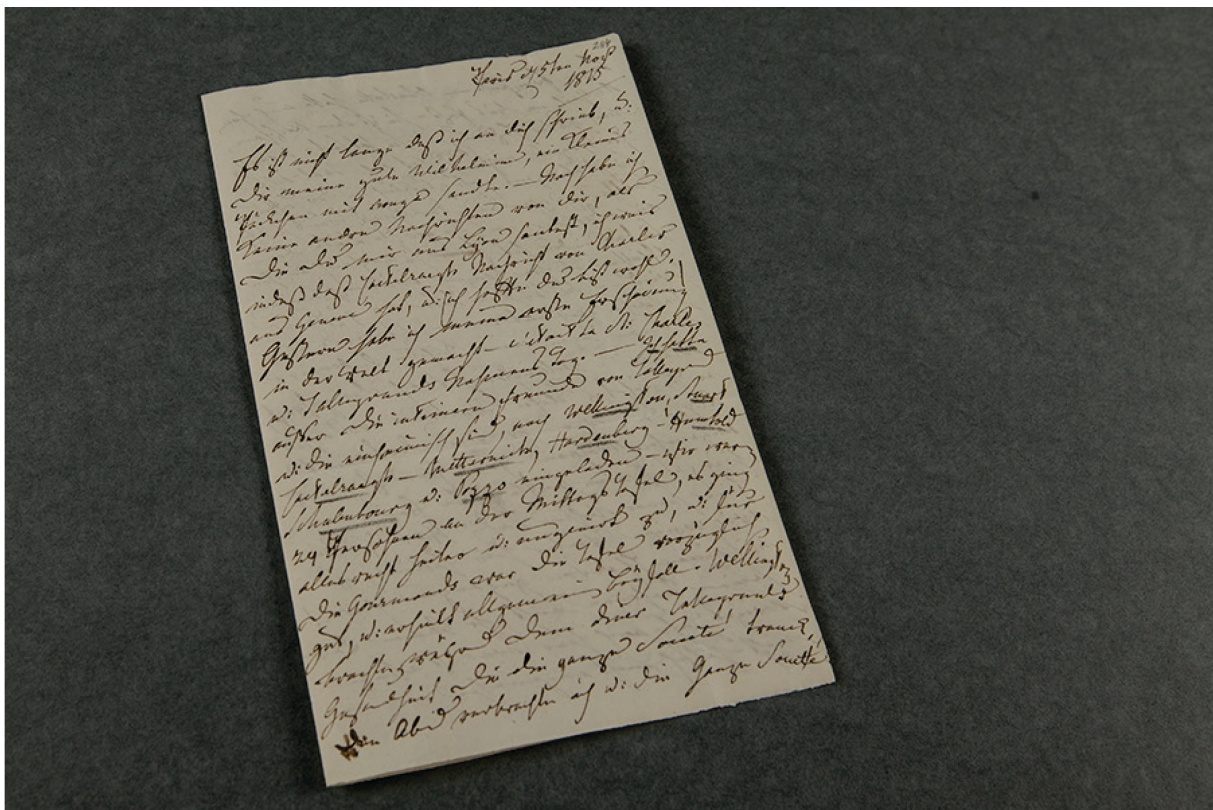 284
Paris d 5ten Nov
1815
Es ist nicht lange daß ich an dich schrieb, u:
dir meine gute Wilhelmine, ein kleines
Päckchen mit sandte. — Noch habe ich
keine andern Nachrichten von dir, als
die du mir aus Lyon sandtest, ich weis
indeß daß Nachricht von Charles
aus Geneve hat, u: ich hoffe du bist wohl.
Gestern habe ich meine erste Erscheinung
in der Welt gemacht — St: Charles
u: Talleyrands Nahmens Tag. —
außer die intimern Freunde von Talleyrand
u: die einheimisch sind, noch Wellington, Stuart
— Metternich, Hardenberg — Humbold
Schulenbourg u: Pozzo eingeladen — wir waren
24 Persohnen an der Mittags Tafel, es ging
alles recht heiter u: ungenirt zu, u: für
die Gourmands war die Tafel vorzüglich
gut, u: erhielt allgemein Beyfall. Wellington
brachte während dem diner Talleyrands
Gesundheit die die ganze Société tranck,
den Abend verbrachte ich u: die Ganze Société